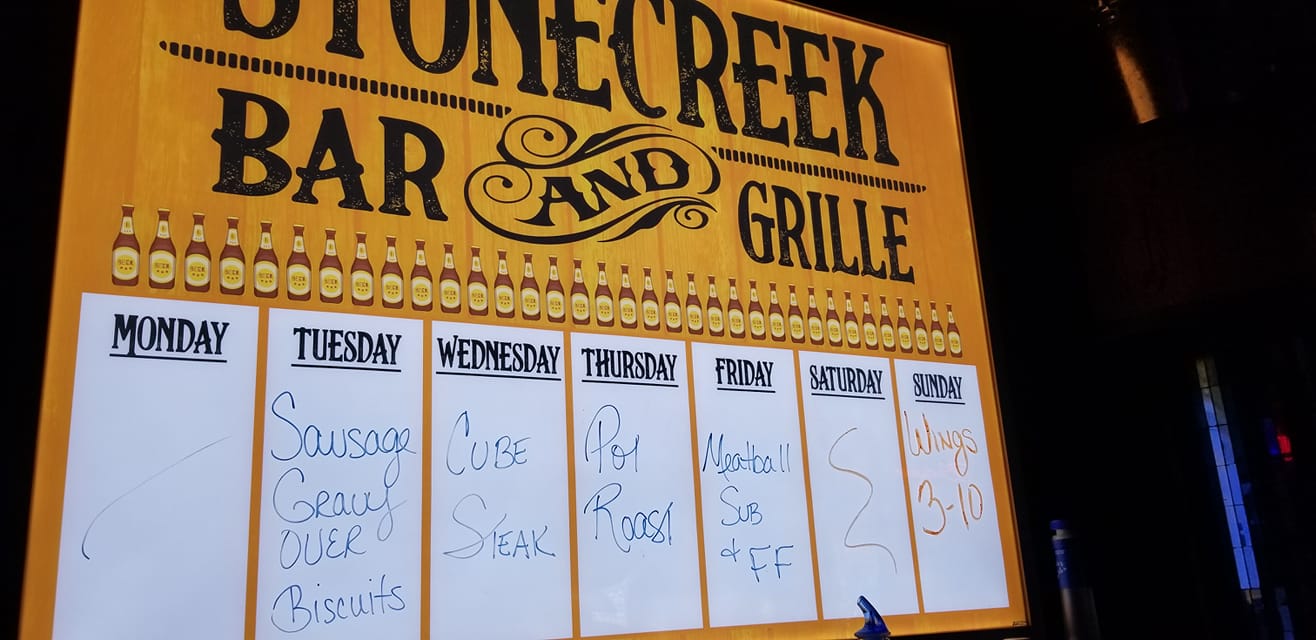 STONECREEK
BAR AND GRILLE
MONDAY
TUESDAY
Sausage
Gravy
OVER
Biscuits
WEDNESDAY
CUBE
STEAK
THURSDAY
Pot
Roast
FRIDAY
Meatball
SUB
& FF
SATURDAY
SUNDAY
Wings
3-10